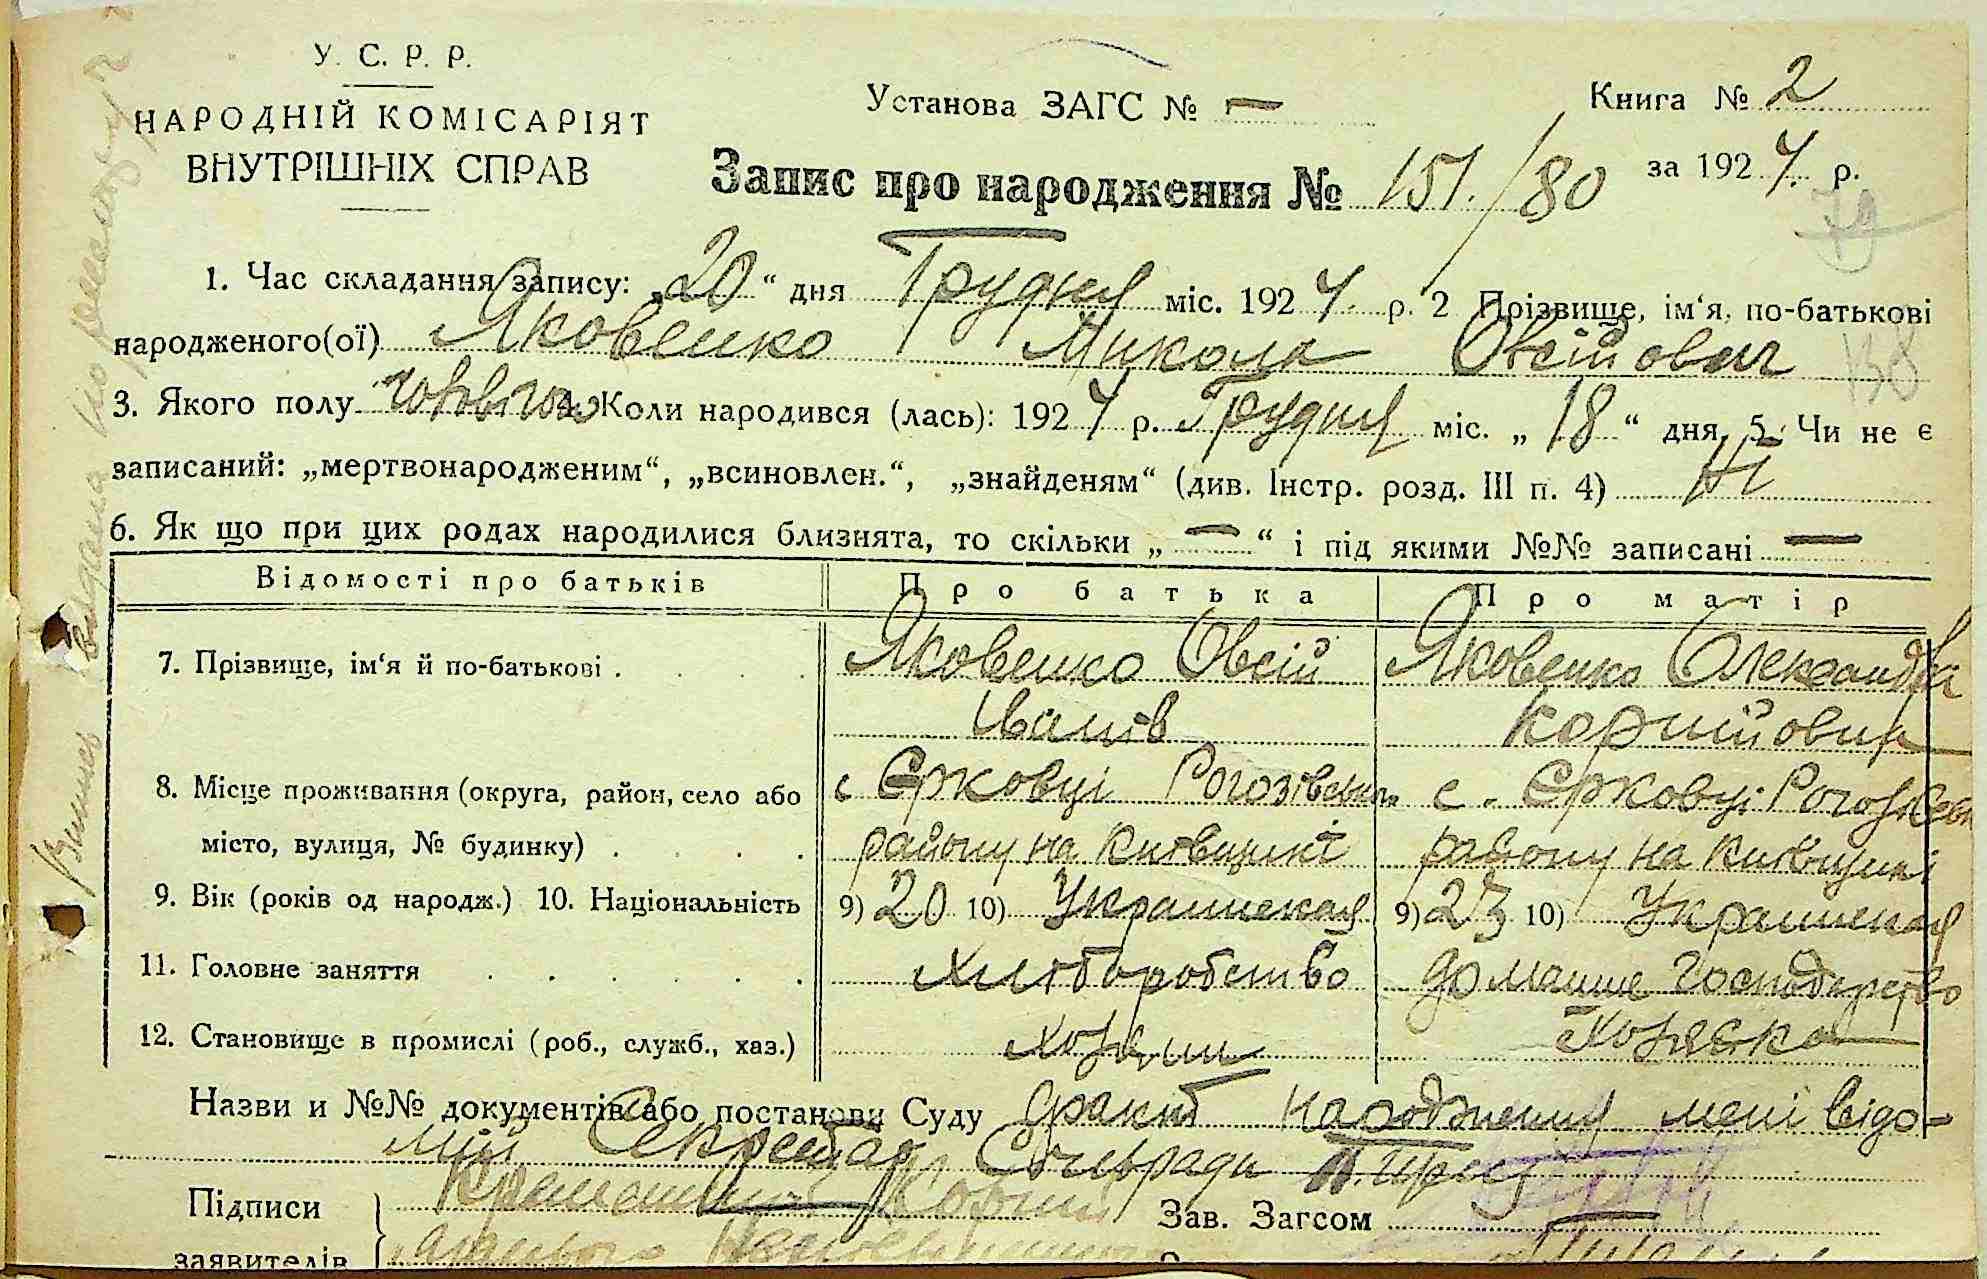 У. С. Р. Р.
НАРОДНІЙ КОМІСАРІЯТ
ВНУТРІШНІХ СПРАВ
Установа ЗАГС № —
Книга № 2
за 1927 р.
Запис про народження № 151./80
79
138
1. Час складання запису: „20“ дня Грудня міс. 1927 р. 2 Прізвище, ім‘я, по-батькові
народженого(ої) Яковенко Микола Овсійович
3. Якого полу чоловічого 4. Коли народився (лась): 1927 р. Грудня міс. „18“ дня, 5. Чи не є
записаний: „мертвонародженим“, „всиновлен.“, „знайденям“ (див. Інстр. розд. III п. 4) Ні
6. Як що при цих родах народилися близнята, то скільки „—“ і під якими №№ записані —
Відомості про батьків Про батька Про матір
7. Прізвище, ім‘я й по-батькові . . . . Яковенко Овсій Яковенко Олександра
Іванів Корнійовна
8. Місце проживання (округа, район, село або с Єрковці Рогозівськ. с. Єрковці Рогозівськ
місто, вулиця, № будинку) . . . . району на Київщині району на Київщині
9. Вік (років од народж.) 10. Національність 9) 20 10) Украинская 9) 23 10) Украинская
11. Головне заняття . . . . . Хліборобство домашнє господарство
12. Становище в промислі (роб., служб., хаз.) Хозяин Хозяєка
Назви и №№ документів або постанови Суду Факт народження мені відо-
мий Секретар Сільради
Підписи Корній
Зав. Загсом
заявителів